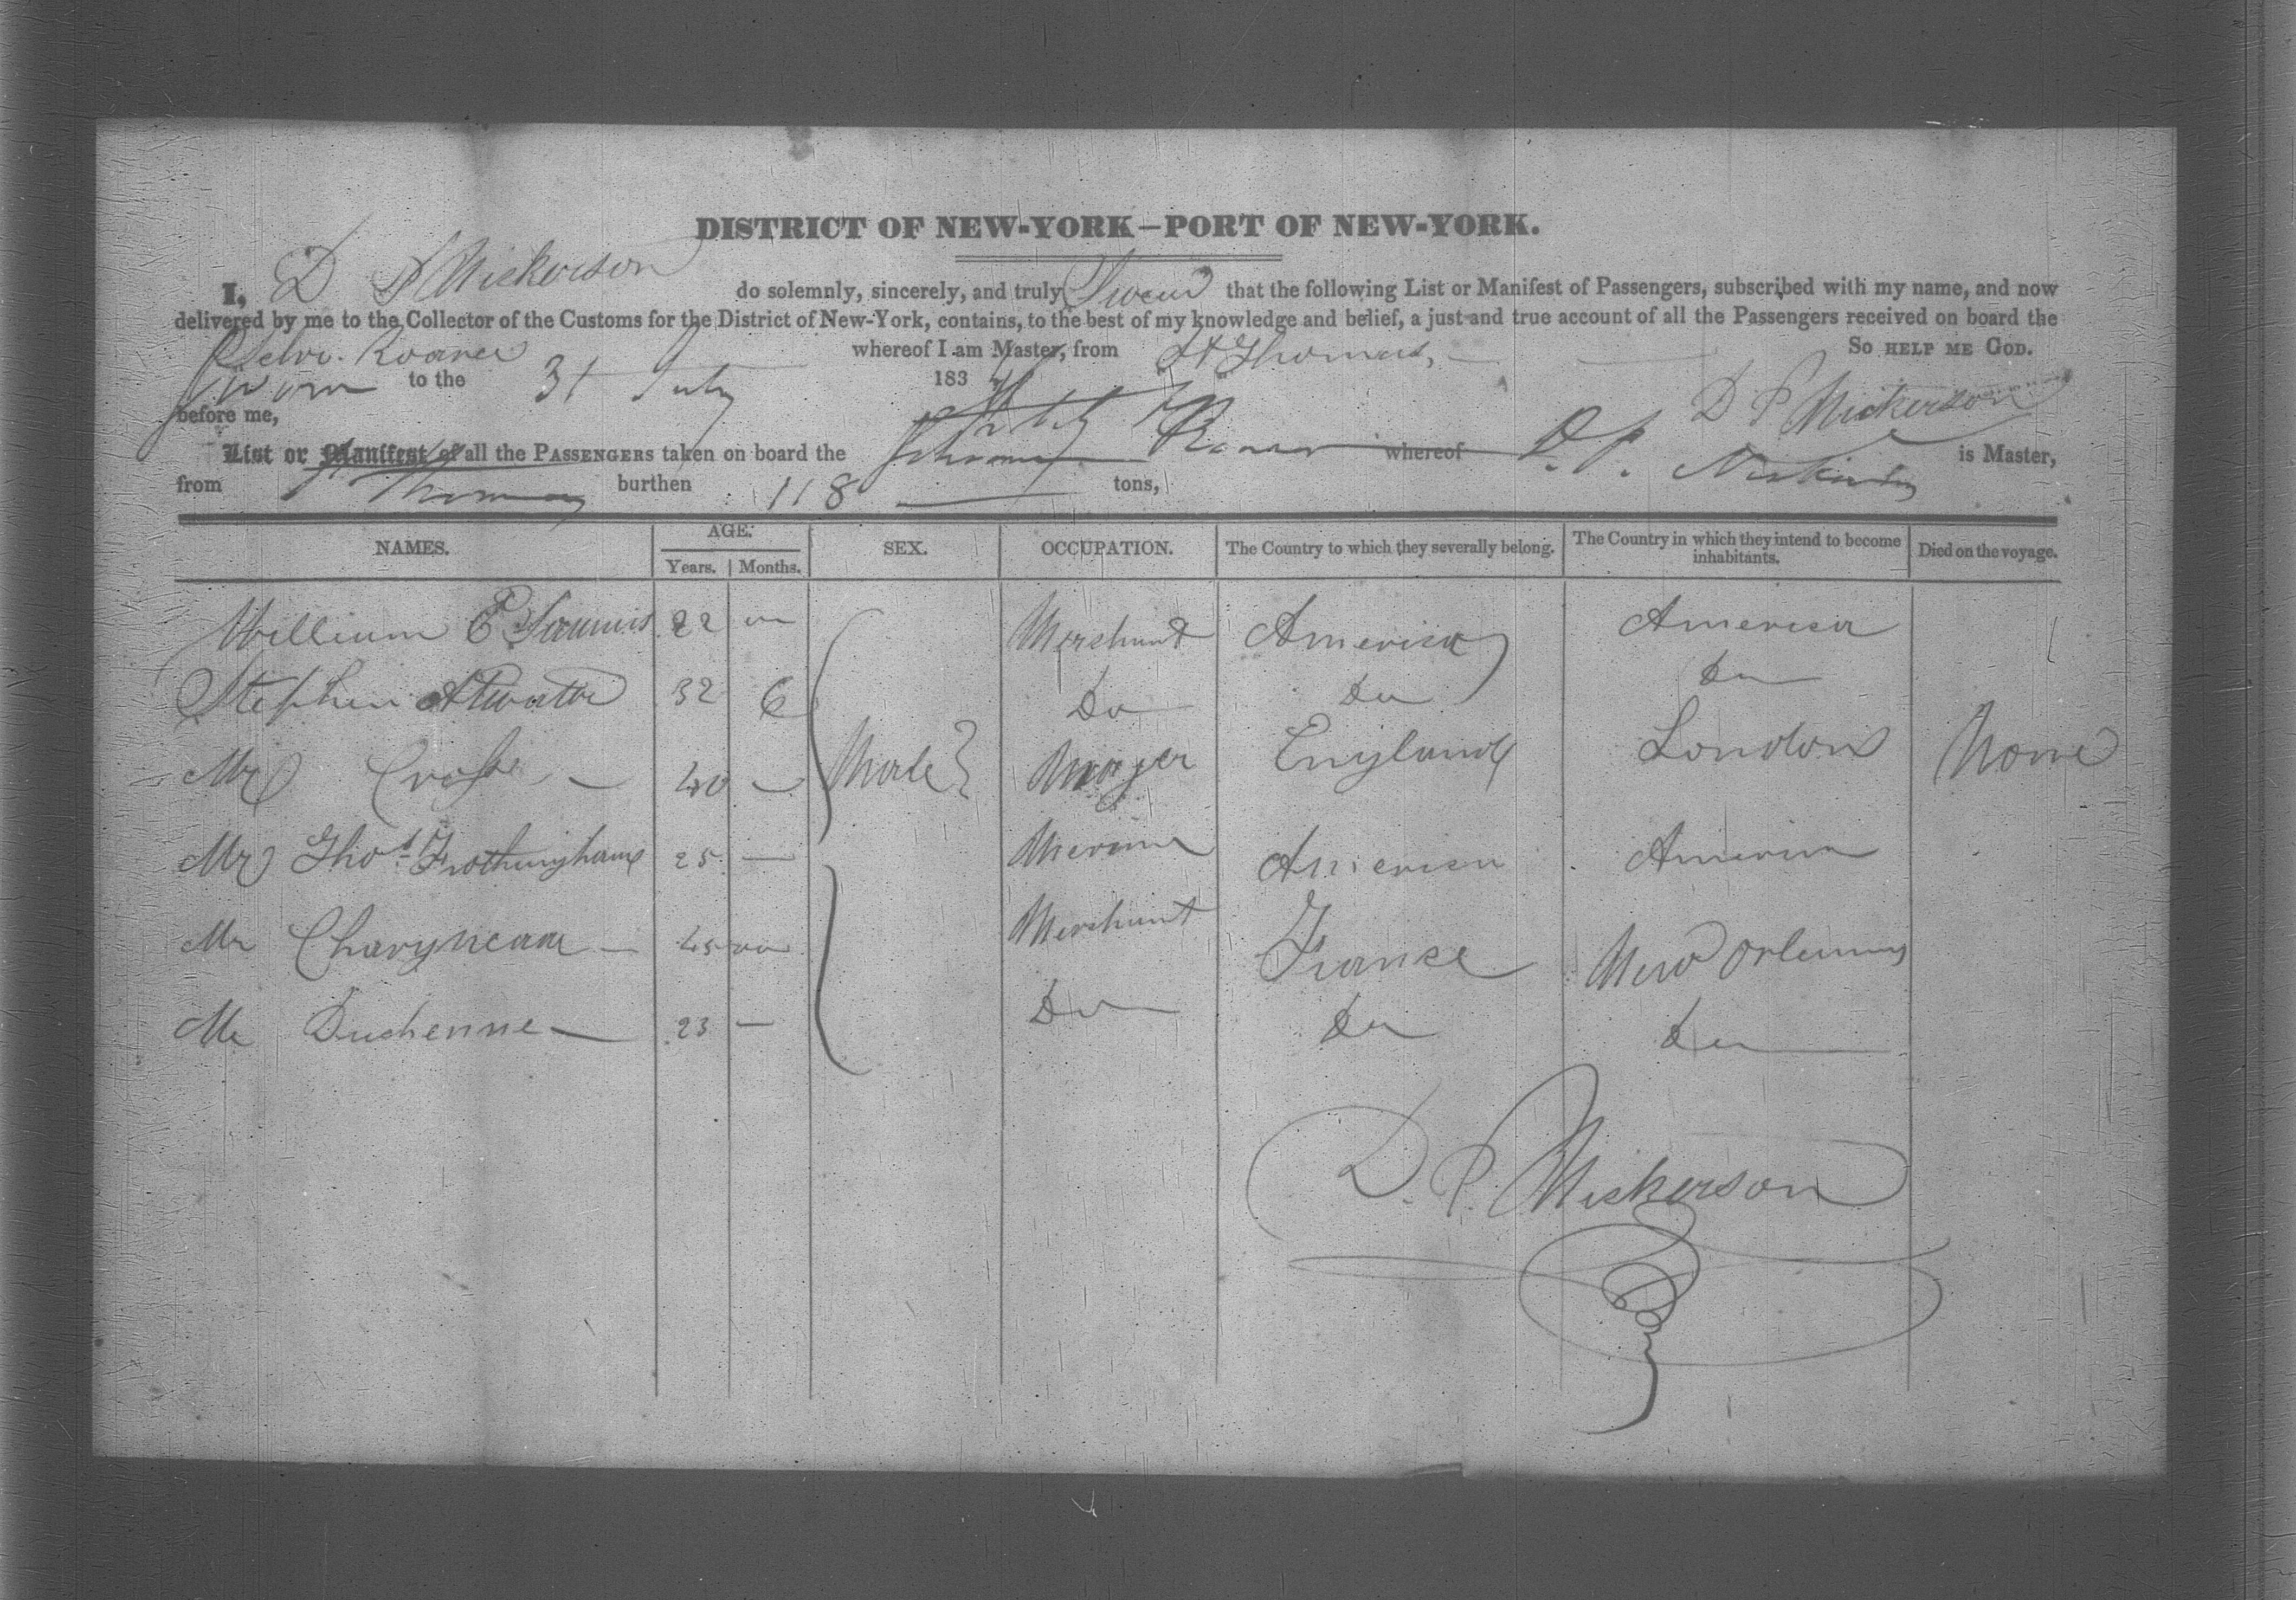 DISTRICT OF NEW-YORK—PORT OF NEW-YORK.
I, D P Nickerson do solemnly, sincerely, and truly Swear that the following List or Manifest of Passengers, subscribed with my name, and now
delivered by me to the Collector of the Customs for the District of New-York, contains, to the best of my knowledge and belief, a just and true account of all the Passengers received on board the
Schr. Roaner whereof I am Master, from St Thomas, So HELP ME GOD.
Sworn to the 31 July 183
before me, D P Nickerson
List or Manifest of all the PASSENGERS taken on board the Schooner Roaner whereof D. P. Nickerson is Master,
from St Thomas burthen 118 tons,
NAMES. AGE. Years. Months. SEX. OCCUPATION. The Country to which they severally belong. The Country in which they intend to become inhabitants. Died on the voyage.
William E 22 Merchant America America
Stephen Atwater 32 6 Do Do Do
Mr 40 Male Mayer England London None
Mr Thos Frothingham 25 — America America
Mr 45 Merchant France New Orleans
Mr Duchenne — 23 — Do Do Do
D. P. Nickerson